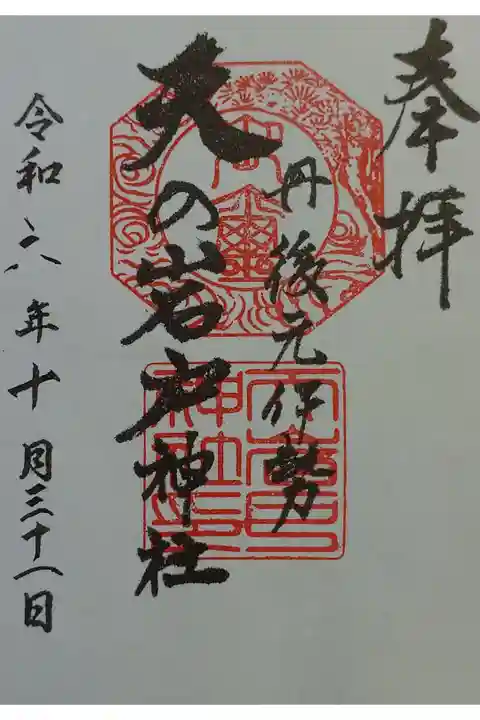 奉拝
丹後元伊勢
天の岩戸神社
令和六年十月三十一日